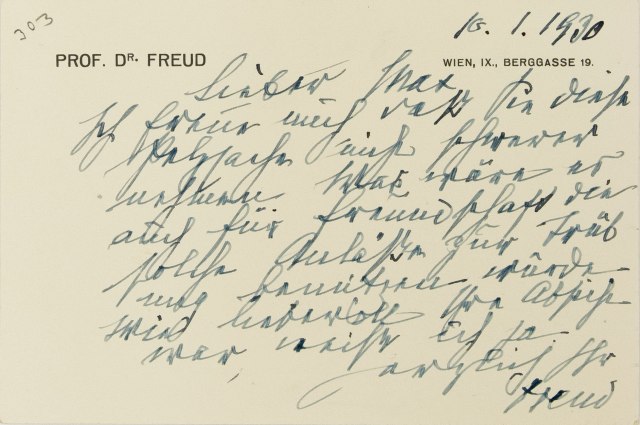 303
16. 1. 1930
PROF. DR. FREUD
WIEN, IX., BERGGASSE 19.
Lieber Max
Ich freue mich daß Sie diese
Pelzsache nicht schwerer
nehmen. Was wäre es
auch für Freundschaft die
solche Anläße zur Trüb
benützen würde
Wie liebevoll Ihre Absicht
war weiß ich ja
Herzlich Ihr
Freud